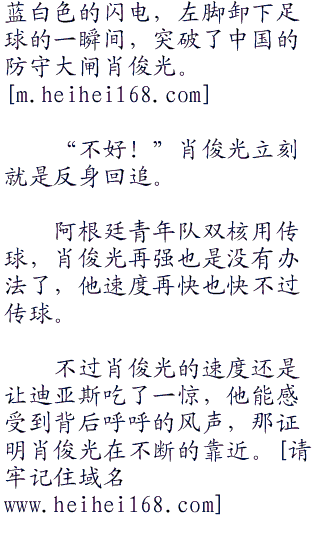 蓝白色的闪电，左脚卸下足
球的一瞬间，突破了中国的
防守大闸肖俊光。
[m.heihei168.com]
“不好！”肖俊光立刻
就是反身回追。
阿根廷青年队双核用传
球，肖俊光再强也是没有办
法了，他速度再快也快不过
传球。
不过肖俊光的速度还是
让迪亚斯吃了一惊，他能感
受到背后呼呼的风声，那证
明肖俊光在不断的靠近。[请
牢记住域名
www.heihei168.com]